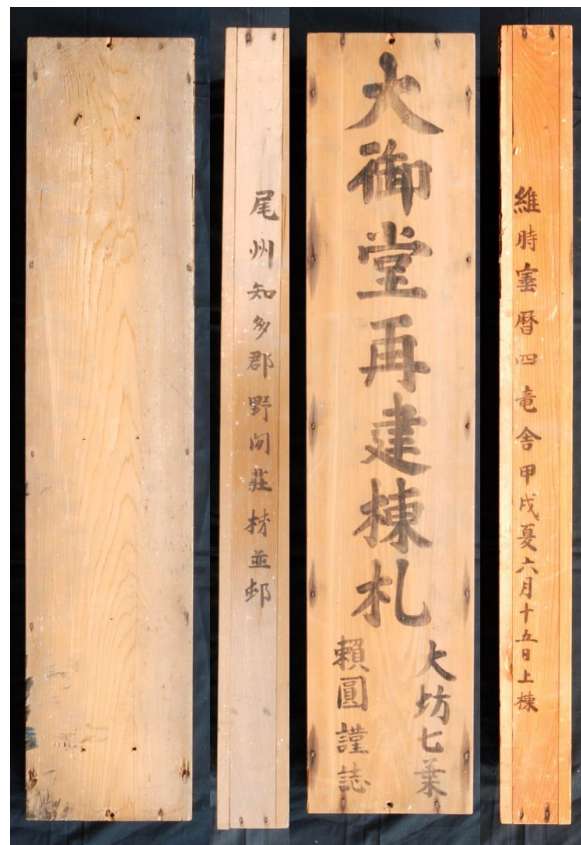 維時寚暦四竜舎甲戌夏六月十五日上棟
大御堂再建棟札
大坊七葉
賴圓謹誌
尾州知多郡野间莊柹並邨